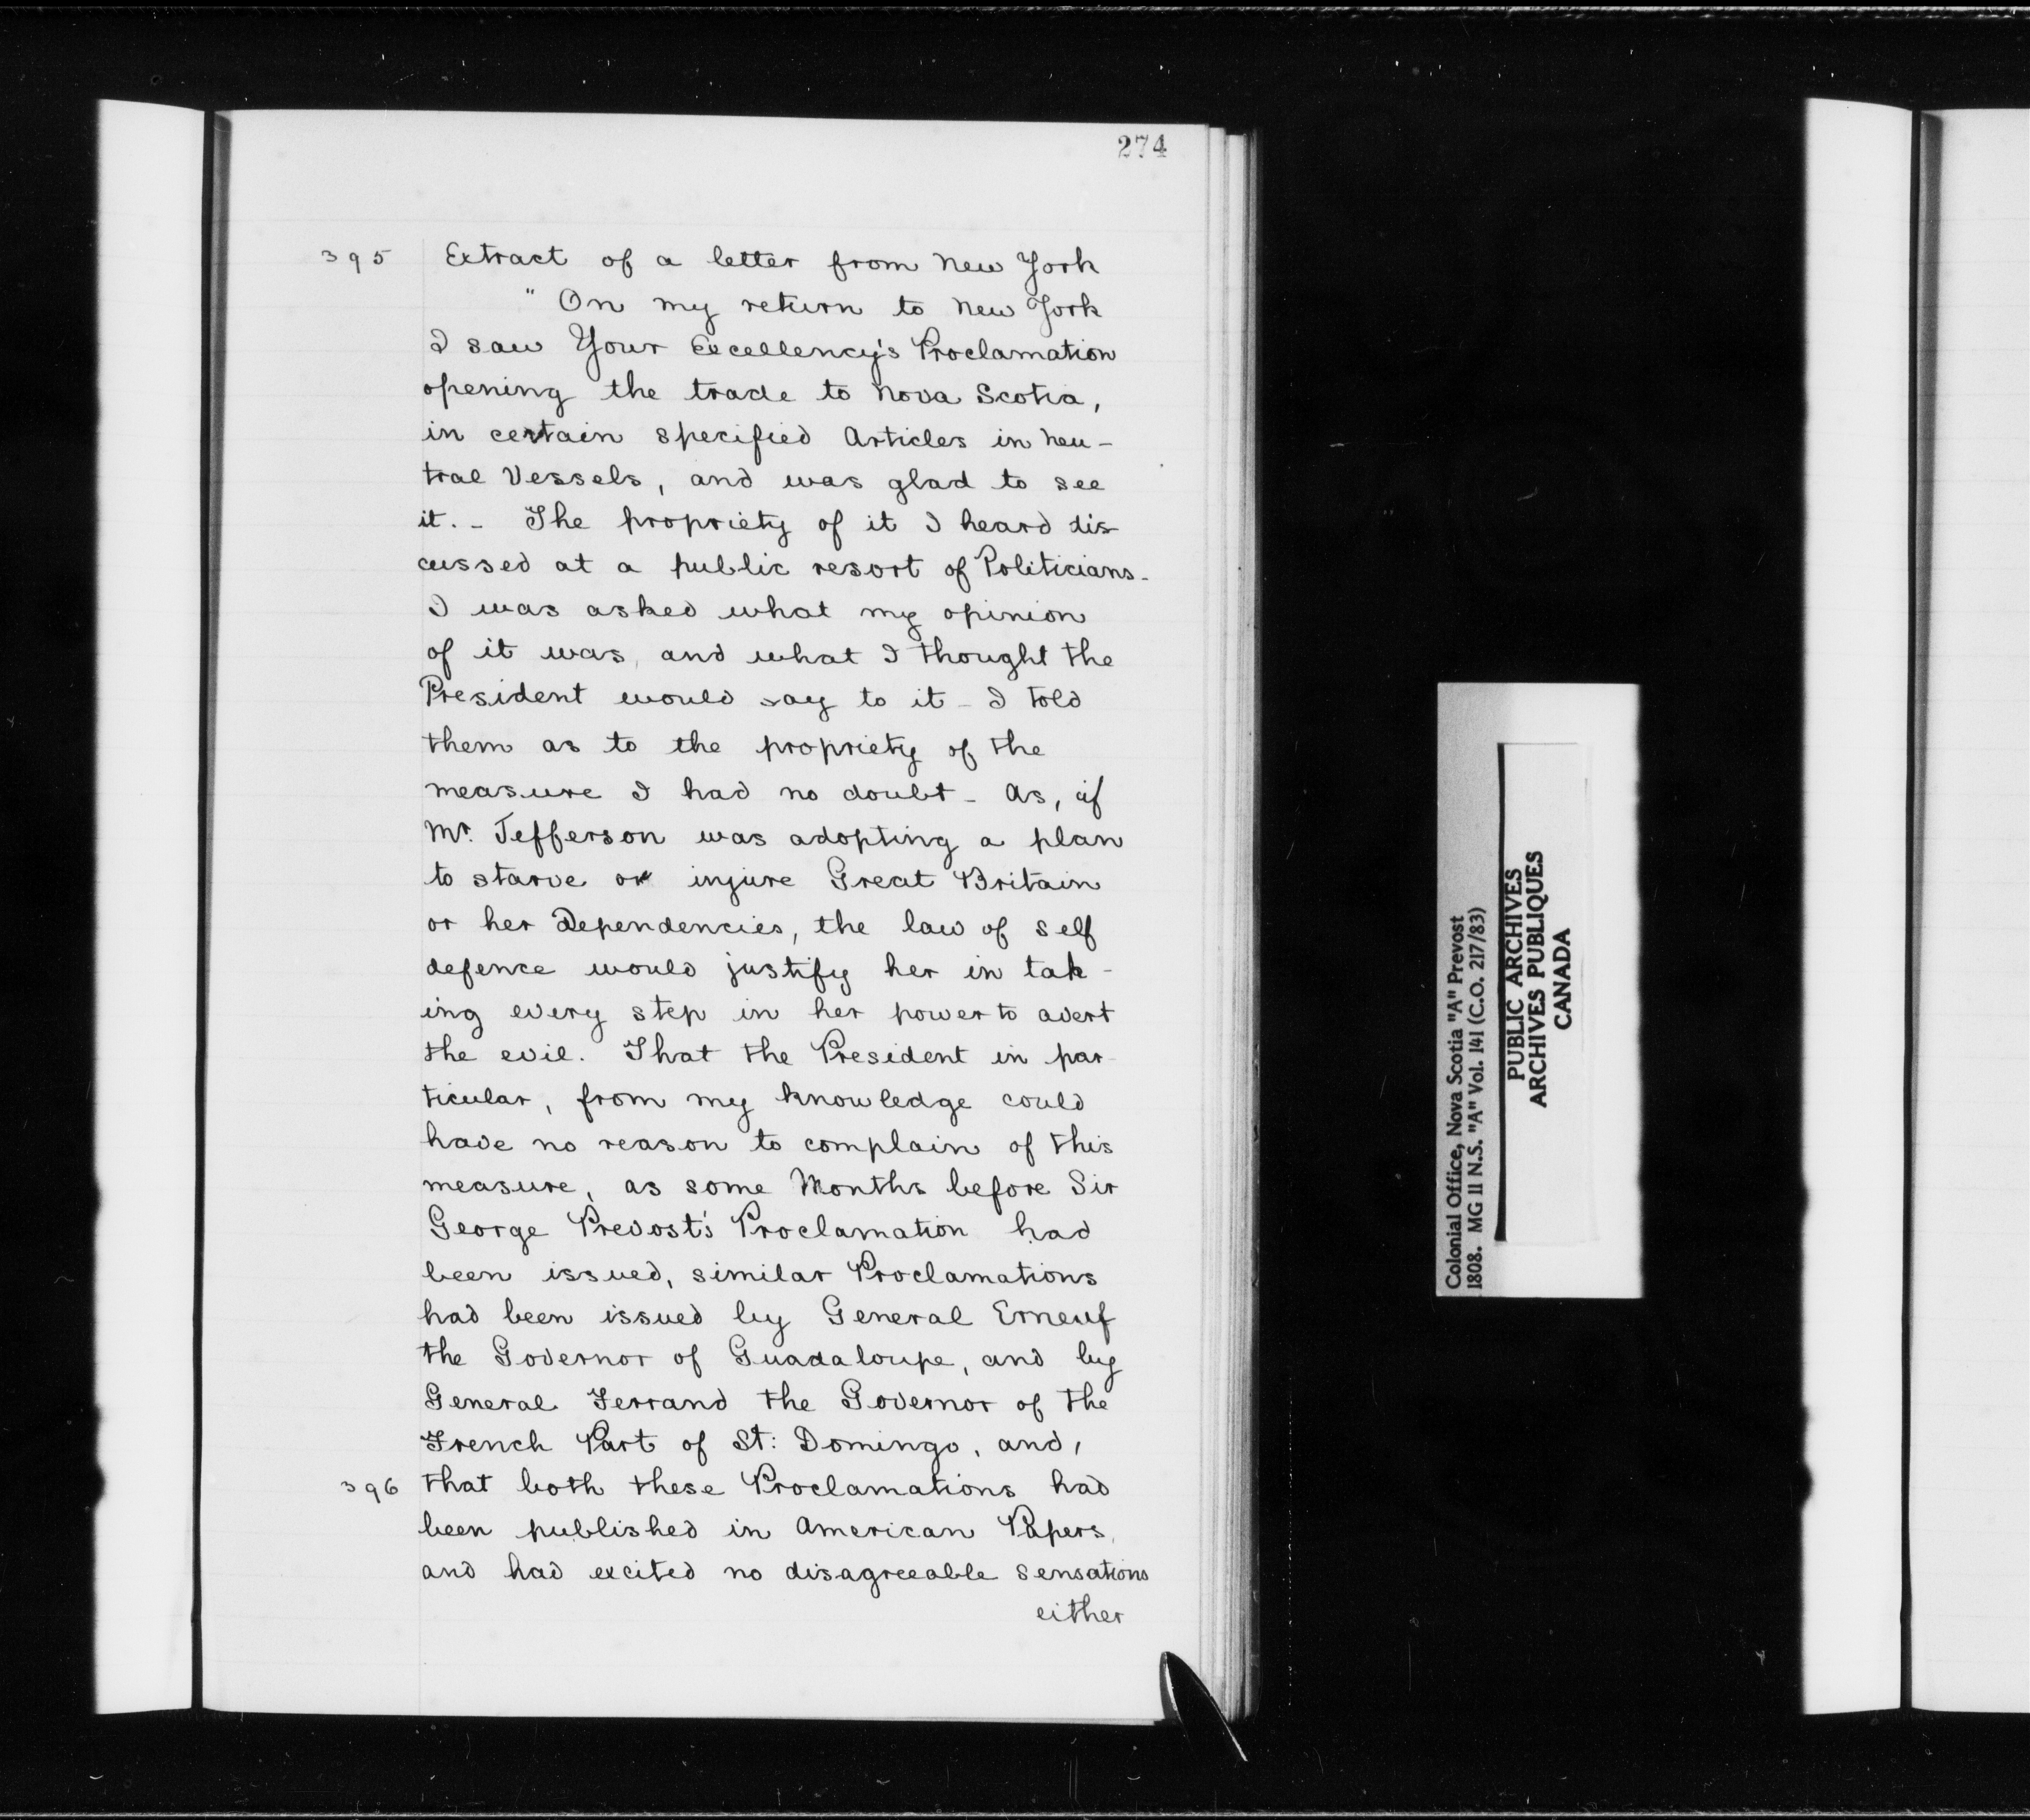 274
395 Extract of a letter from New York
" On my return to New York
I saw Your Excellency's Proclamation
opening the trade to Nova Scotia,
in certain specified Articles in neu-
tral Vessels, and was glad to see
it. - The propriety of it I heard dis
cussed at a public resort of Politicians.
I was asked what my opinion
of it was, and what I thought the
President would say to it - I told
them as to the propriety of the
measure I had no doubt - As, if
Mr. Jefferson was adopting a plan
to starve or injure Great Britain
or her Dependencies, the law of self
defence would justify her in tak-
ing every step in her power to avert
the evil. That the President in par-
ticular, from my knowledge could
have no reason to complain of this
measure, as some Months before Sir
George Prevost's Proclamation had
been issued, similar Proclamations
had been issued by General Erneuf
the Governor of Guadaloupe, and by
General Ferrand the Governor of the
French Part of St: Domingo, and,
396 that both these Proclamations had
been published in American Papers,
and had excited no disagreeable sensations
either
Colonial Office, Nova Scotia "A" Prevost
1808. MG 11 N.S. "A" Vol. 141 (C.O. 217/83)
PUBLIC ARCHIVES
ARCHIVES PUBLIQUES
CANADA